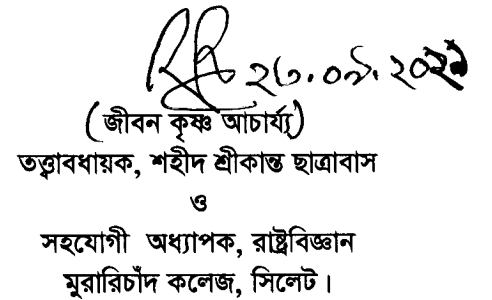 ২৩.০৯.২০২১
(জীবন কৃষ্ণ আচার্য্য)
তত্ত্বাবধায়ক, শহীদ শ্রীকান্ত ছাত্রাবাস
ও
সহযোগী অধ্যাপক, রাষ্ট্রবিজ্ঞান
মুরারিচাঁদ কলেজ, সিলেট।